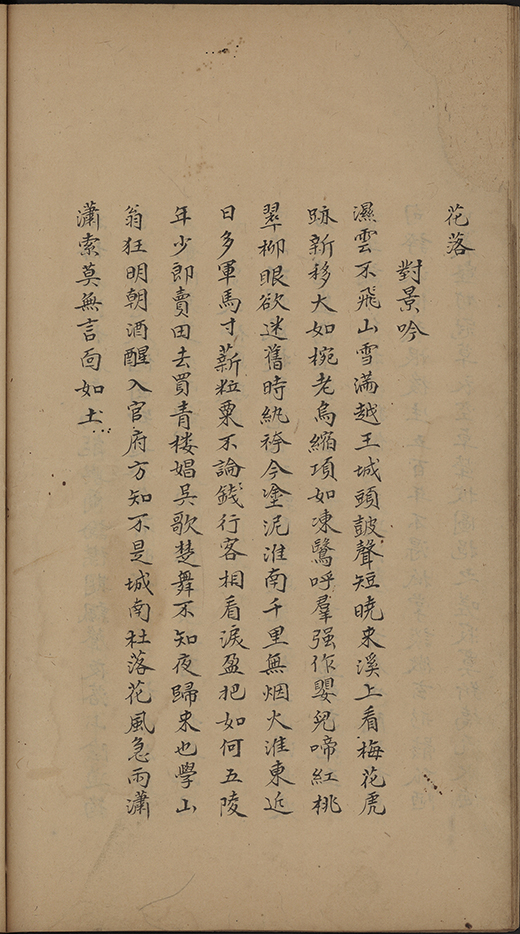 花落
對景吟
濕雲不飛山雪滿越王城頭皷聲短曉来溪上看梅花虎
跡新移大如椀老烏縮項如凍鷺呼羣强作嬰兒啼紅桃
翠柳眼欲迷舊時紈袴今塗泥淮南千里無烟火淮東近
日多軍馬寸薪粒粟不論錢行客相看淚盈把如何五陵
年少郎賣田去買青楼娼吳歌楚舞不知夜歸来也學山
翁狂明朝酒醒入官府方知不是城南杜落花風急雨瀟
瀟索莫無言面如土